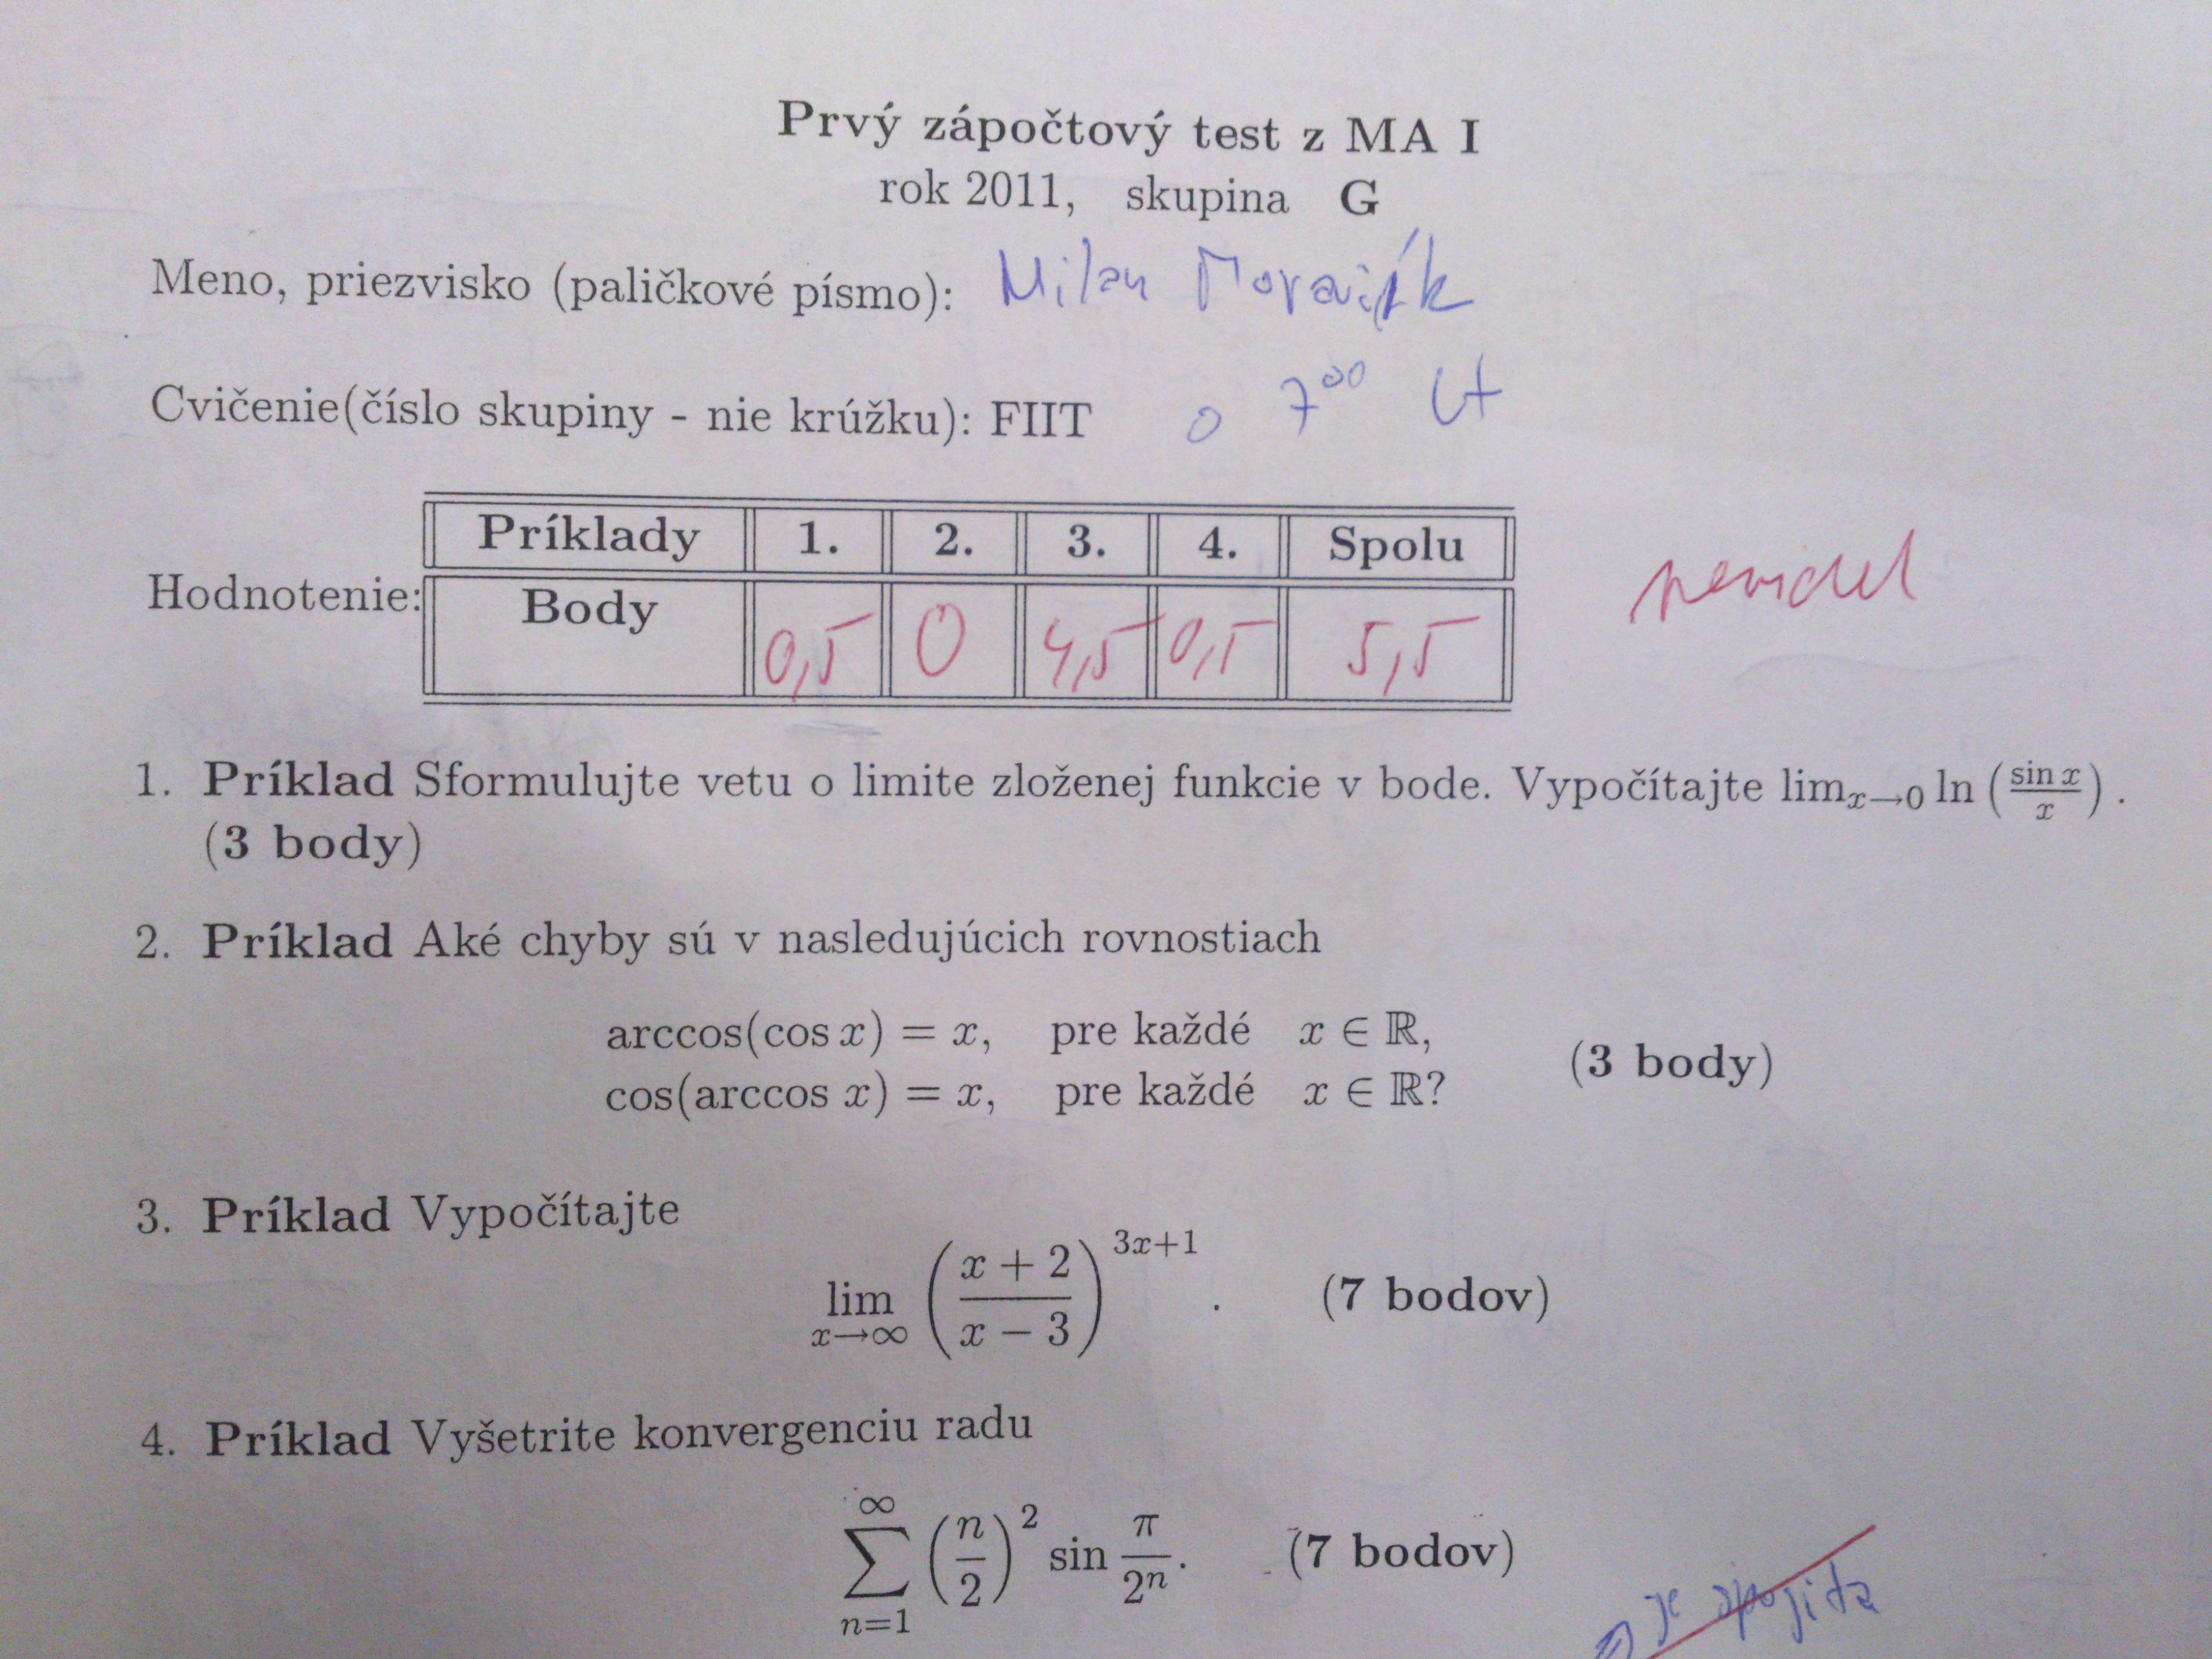 Prvý zápočtový test z MA I
rok 2011, skupina G
Meno, priezvisko (paličkové písmo): Milan
Cvičenie(číslo skupiny - nie krúžku): FIIT o 7⁰⁰ Ut
Príklady 1. 2. 3. 4. Spolu
Hodnotenie: Body 0,5 0 4,5 0,5 5,5
nevidel
1. Príklad Sformulujte vetu o limite zloženej funkcie v bode. Vypočítajte lim_{x→0} ln (sin x / x).
(3 body)
2. Príklad Aké chyby sú v nasledujúcich rovnostiach
arccos(cos x) = x, pre každé x ∈ ℝ,
cos(arccos x) = x, pre každé x ∈ ℝ? (3 body)
3. Príklad Vypočítajte
lim_{x→∞} ((x + 2)/(x − 3))^{3x+1} . (7 bodov)
4. Príklad Vyšetrite konvergenciu radu
∑_{n=1}^{∞} (n/2)² sin π/2ⁿ. (7 bodov)
je spojitá